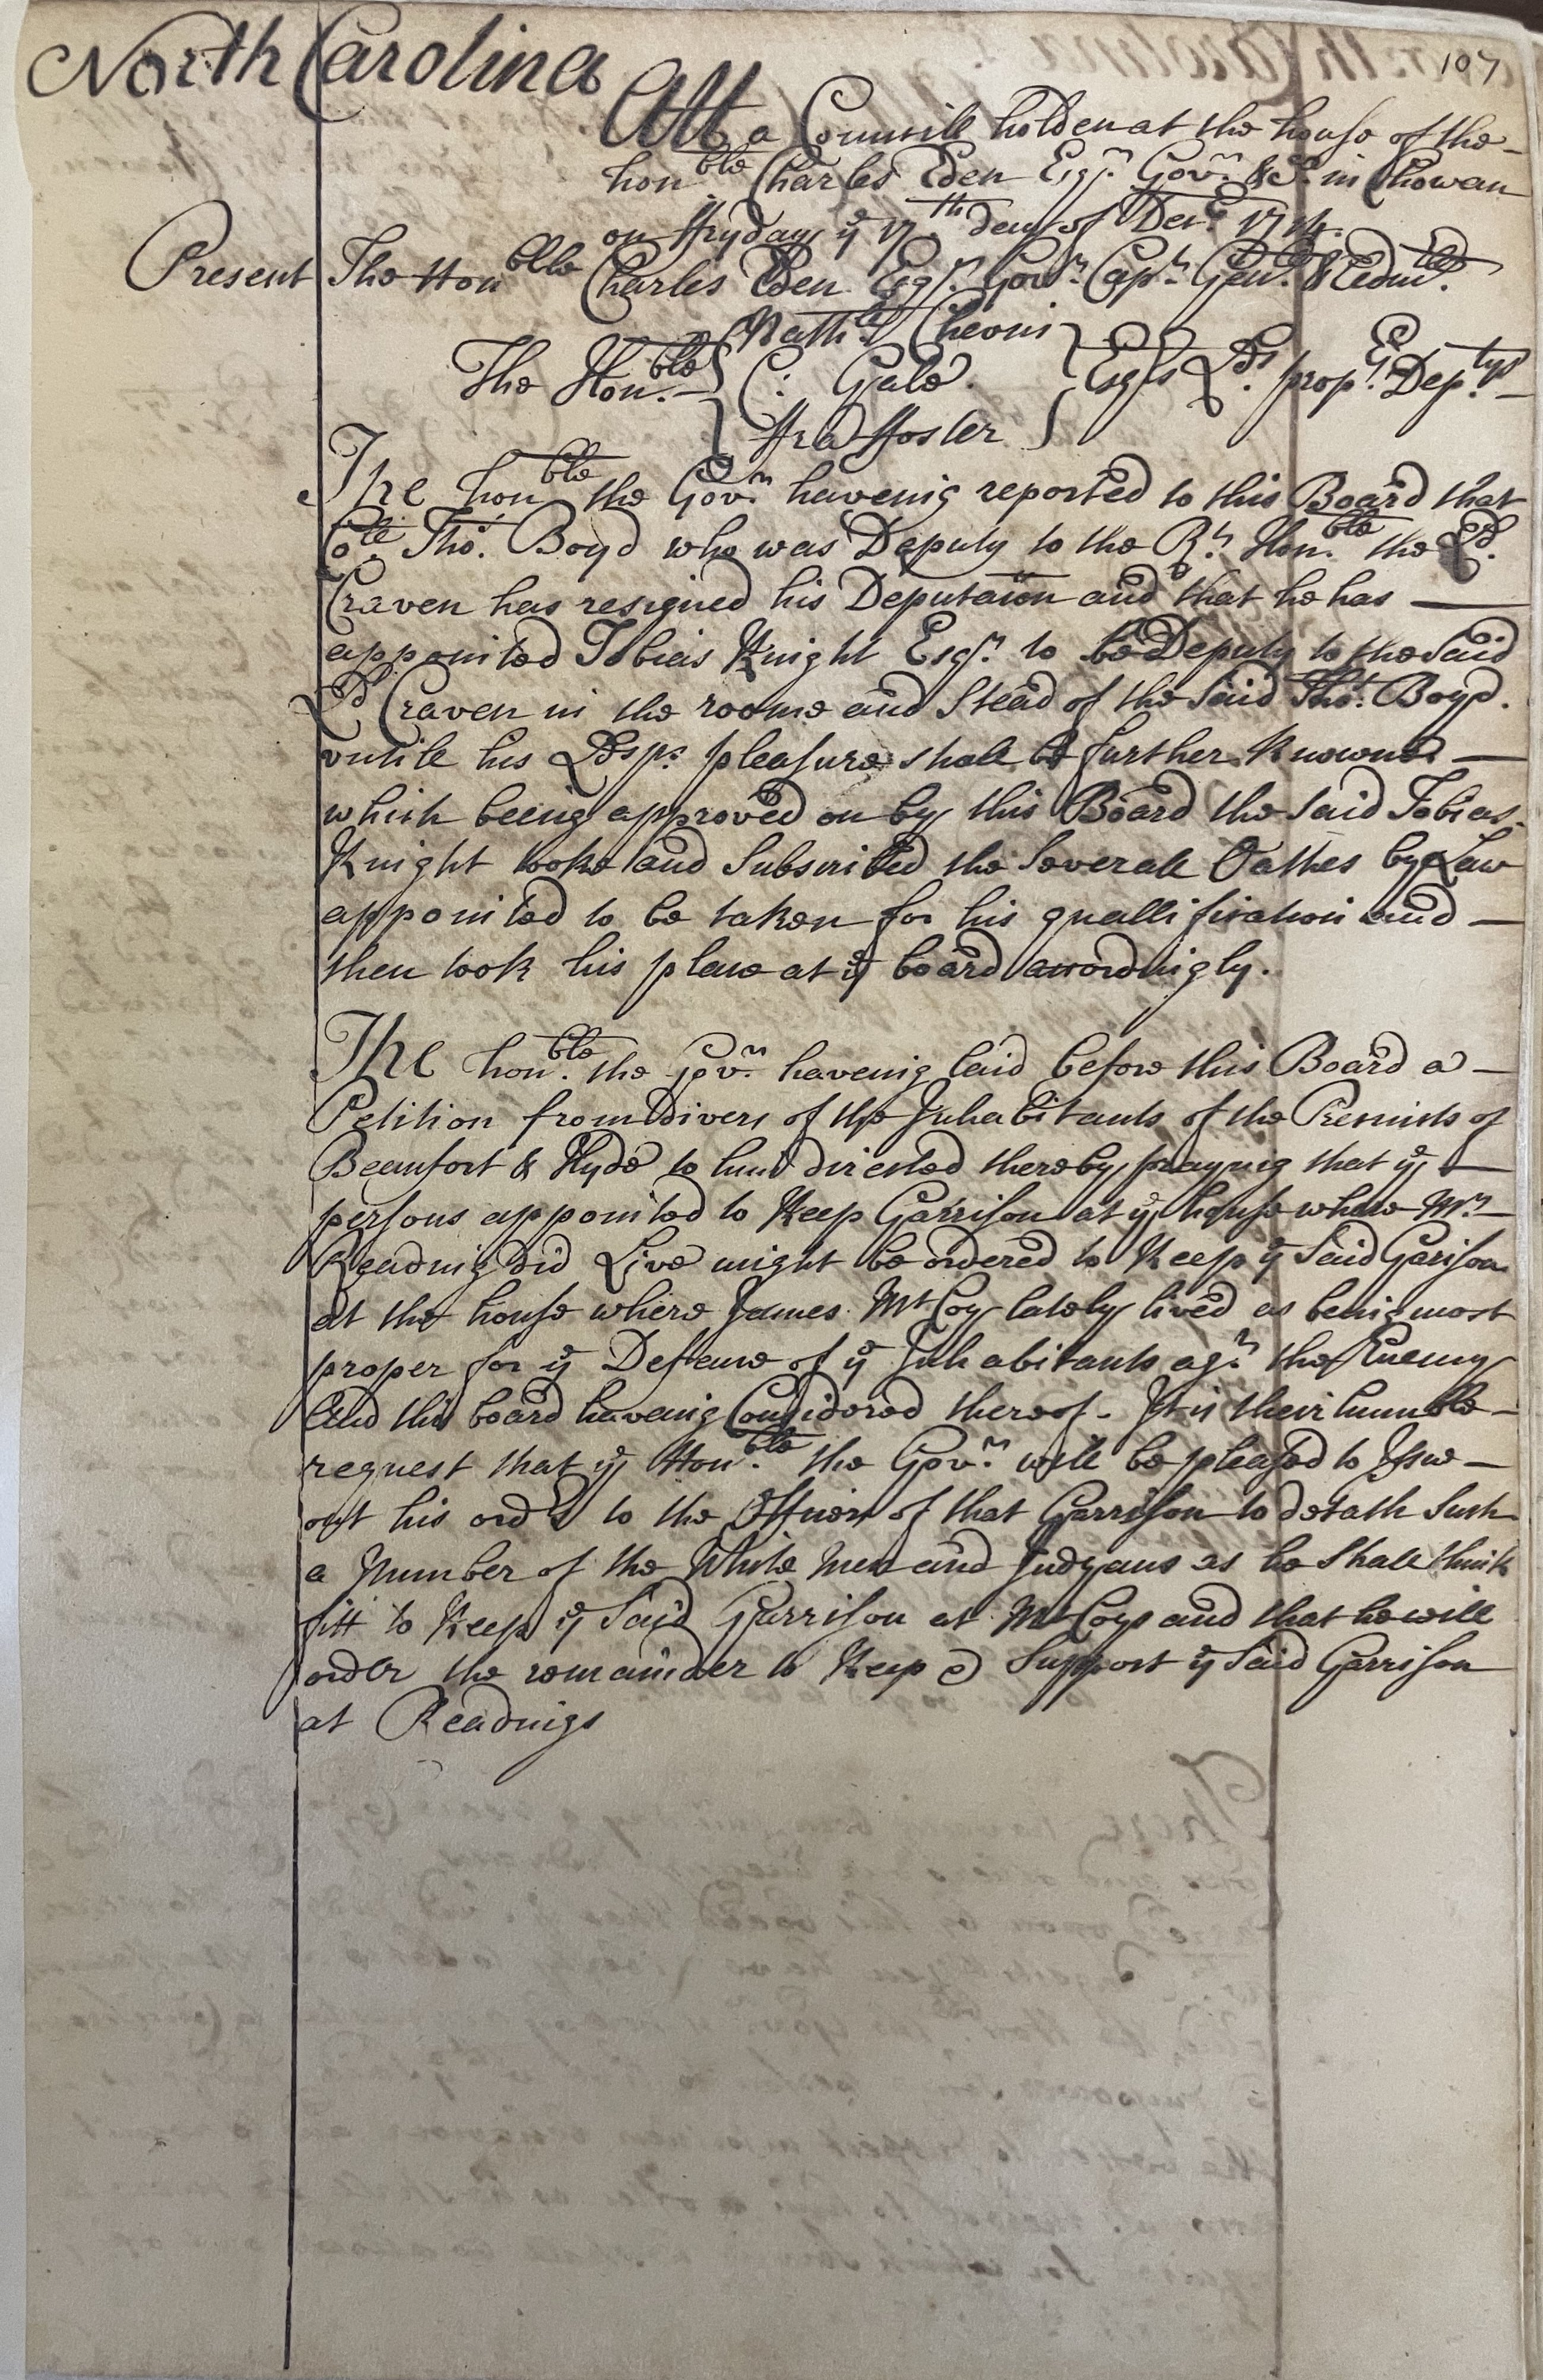 107
North Carolina
Att a Councill holden at the house of the
hon:ble Charles Eden Esqr. Govr. &c. in Chowan
on ffryday ye 17th day of Decr. 1714.
Present The Honble Charles Eden Esqr. Govr. Capt. Genll. & Admll.
Nathll Chevin
The Honble. C: Gale. Esqs Lds. propt. Deptys
ffra ffoster
The honble the Govr. haveing reported to this Board that
Coll. Tho. Boyd who was Deputy to the Rt. Honble. the Ld.
Craven has resigned his Deputaion and that he has
appointed Tobias Knight Esqr. to be Deputy to the Said
Ld Craven in the roome and Stead of the Said Tho. Boyd.
untill his Ldsps. pleasure shall be further Knowne
which being approved on by this Board the said Tobias
Knight tooke and Subscribed the Severall Oathes by Law
appointed to be taken for his quallification and
then took his place at ye board accordingly.
The honble. the Govr. haveing laid before this Board a
Petition from divers of the Inhabitants of the Precincts of
Beaufort & Hyde to him directed thereby praying that ye
persons appointed to Keep Garrison at ye house where Mr.
Reading did Live might be ordered to Keep ye Said Garison
at the house where James Mt Coy lately lived as being most
proper for ye Defence of ye Inhabitants agt. the Enemy
And this board haveing Considered thereof. It is their humble
request that ye Honble. the Govr. will be pleased to Issue
out his ord to the Officer of that Garrison to detach Such
a Number of the White Men and Indyans as he Shall think
fitt to Keep ye Said Garrison at Mt Coys and that he will
order the remainder to Keep & Support ye Said Garrison
at Readings